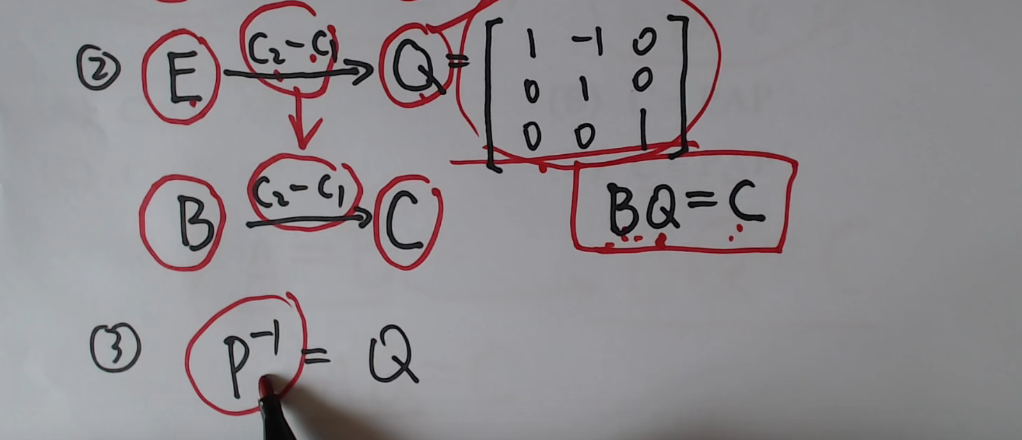 ② E C₂-C₁ Q = [1 -1 0
0 1 0
0 0 1]
B C₂-C₁ C BQ=C
③ P⁻¹ = Q